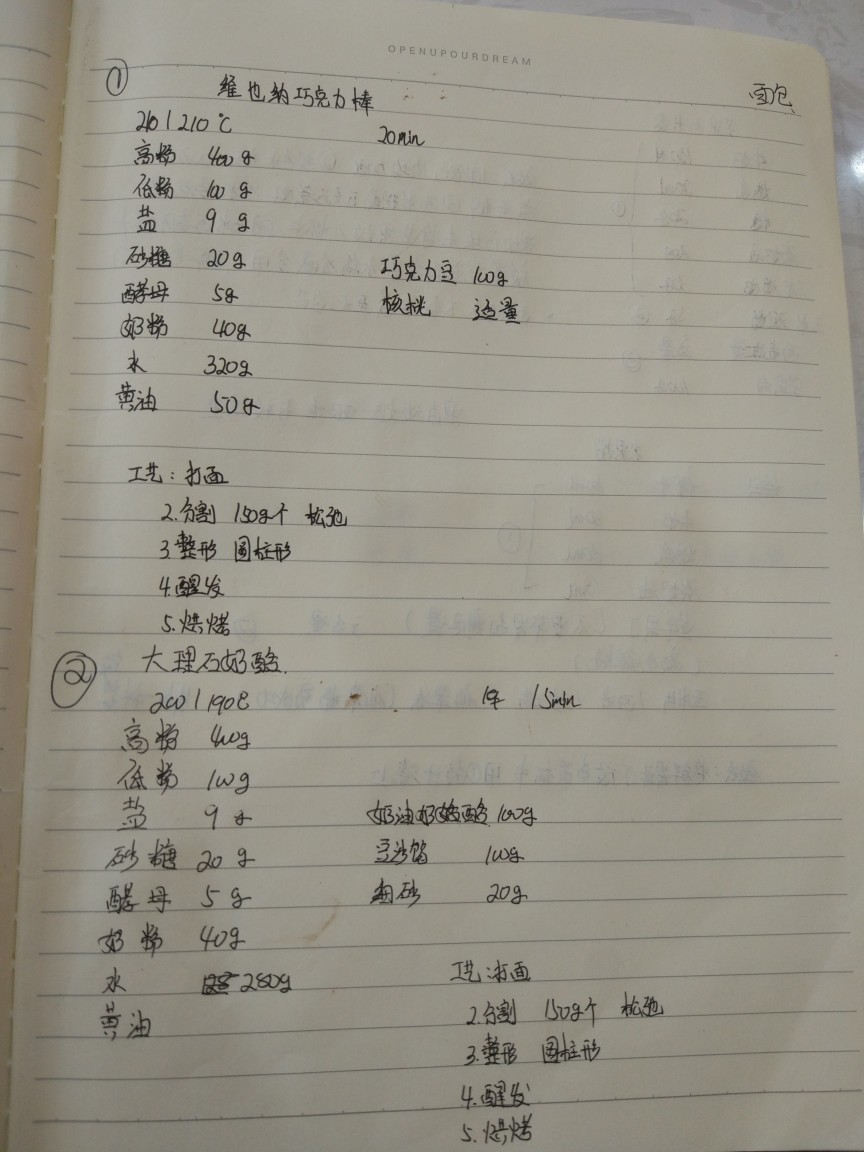 OPENUPOURDREAM
① 维也纳巧克力棒 面包
210 / 210℃ 20min
高粉 400g
低粉 100g
盐 9g
砂糖 20g 巧克力豆 100g
酵母 5g 核桃 适量
奶粉 40g
水 320g
黄油 50g
工艺：打面
2.分割 150g个 松弛
3.整形 圆柱形
4.醒发
5.烘烤
② 大理石奶酪
200 / 190℃ 15min
高粉 400g
低粉 100g
盐 9g 奶油奶酪 100g
砂糖 20g 豆沙馅 100g
酵母 5g 砂 20g
奶粉 40g
水 280g 工艺：打面
黄油 2.分割 150g个 松弛
3.整形 圆柱形
4.醒发
5.烘烤